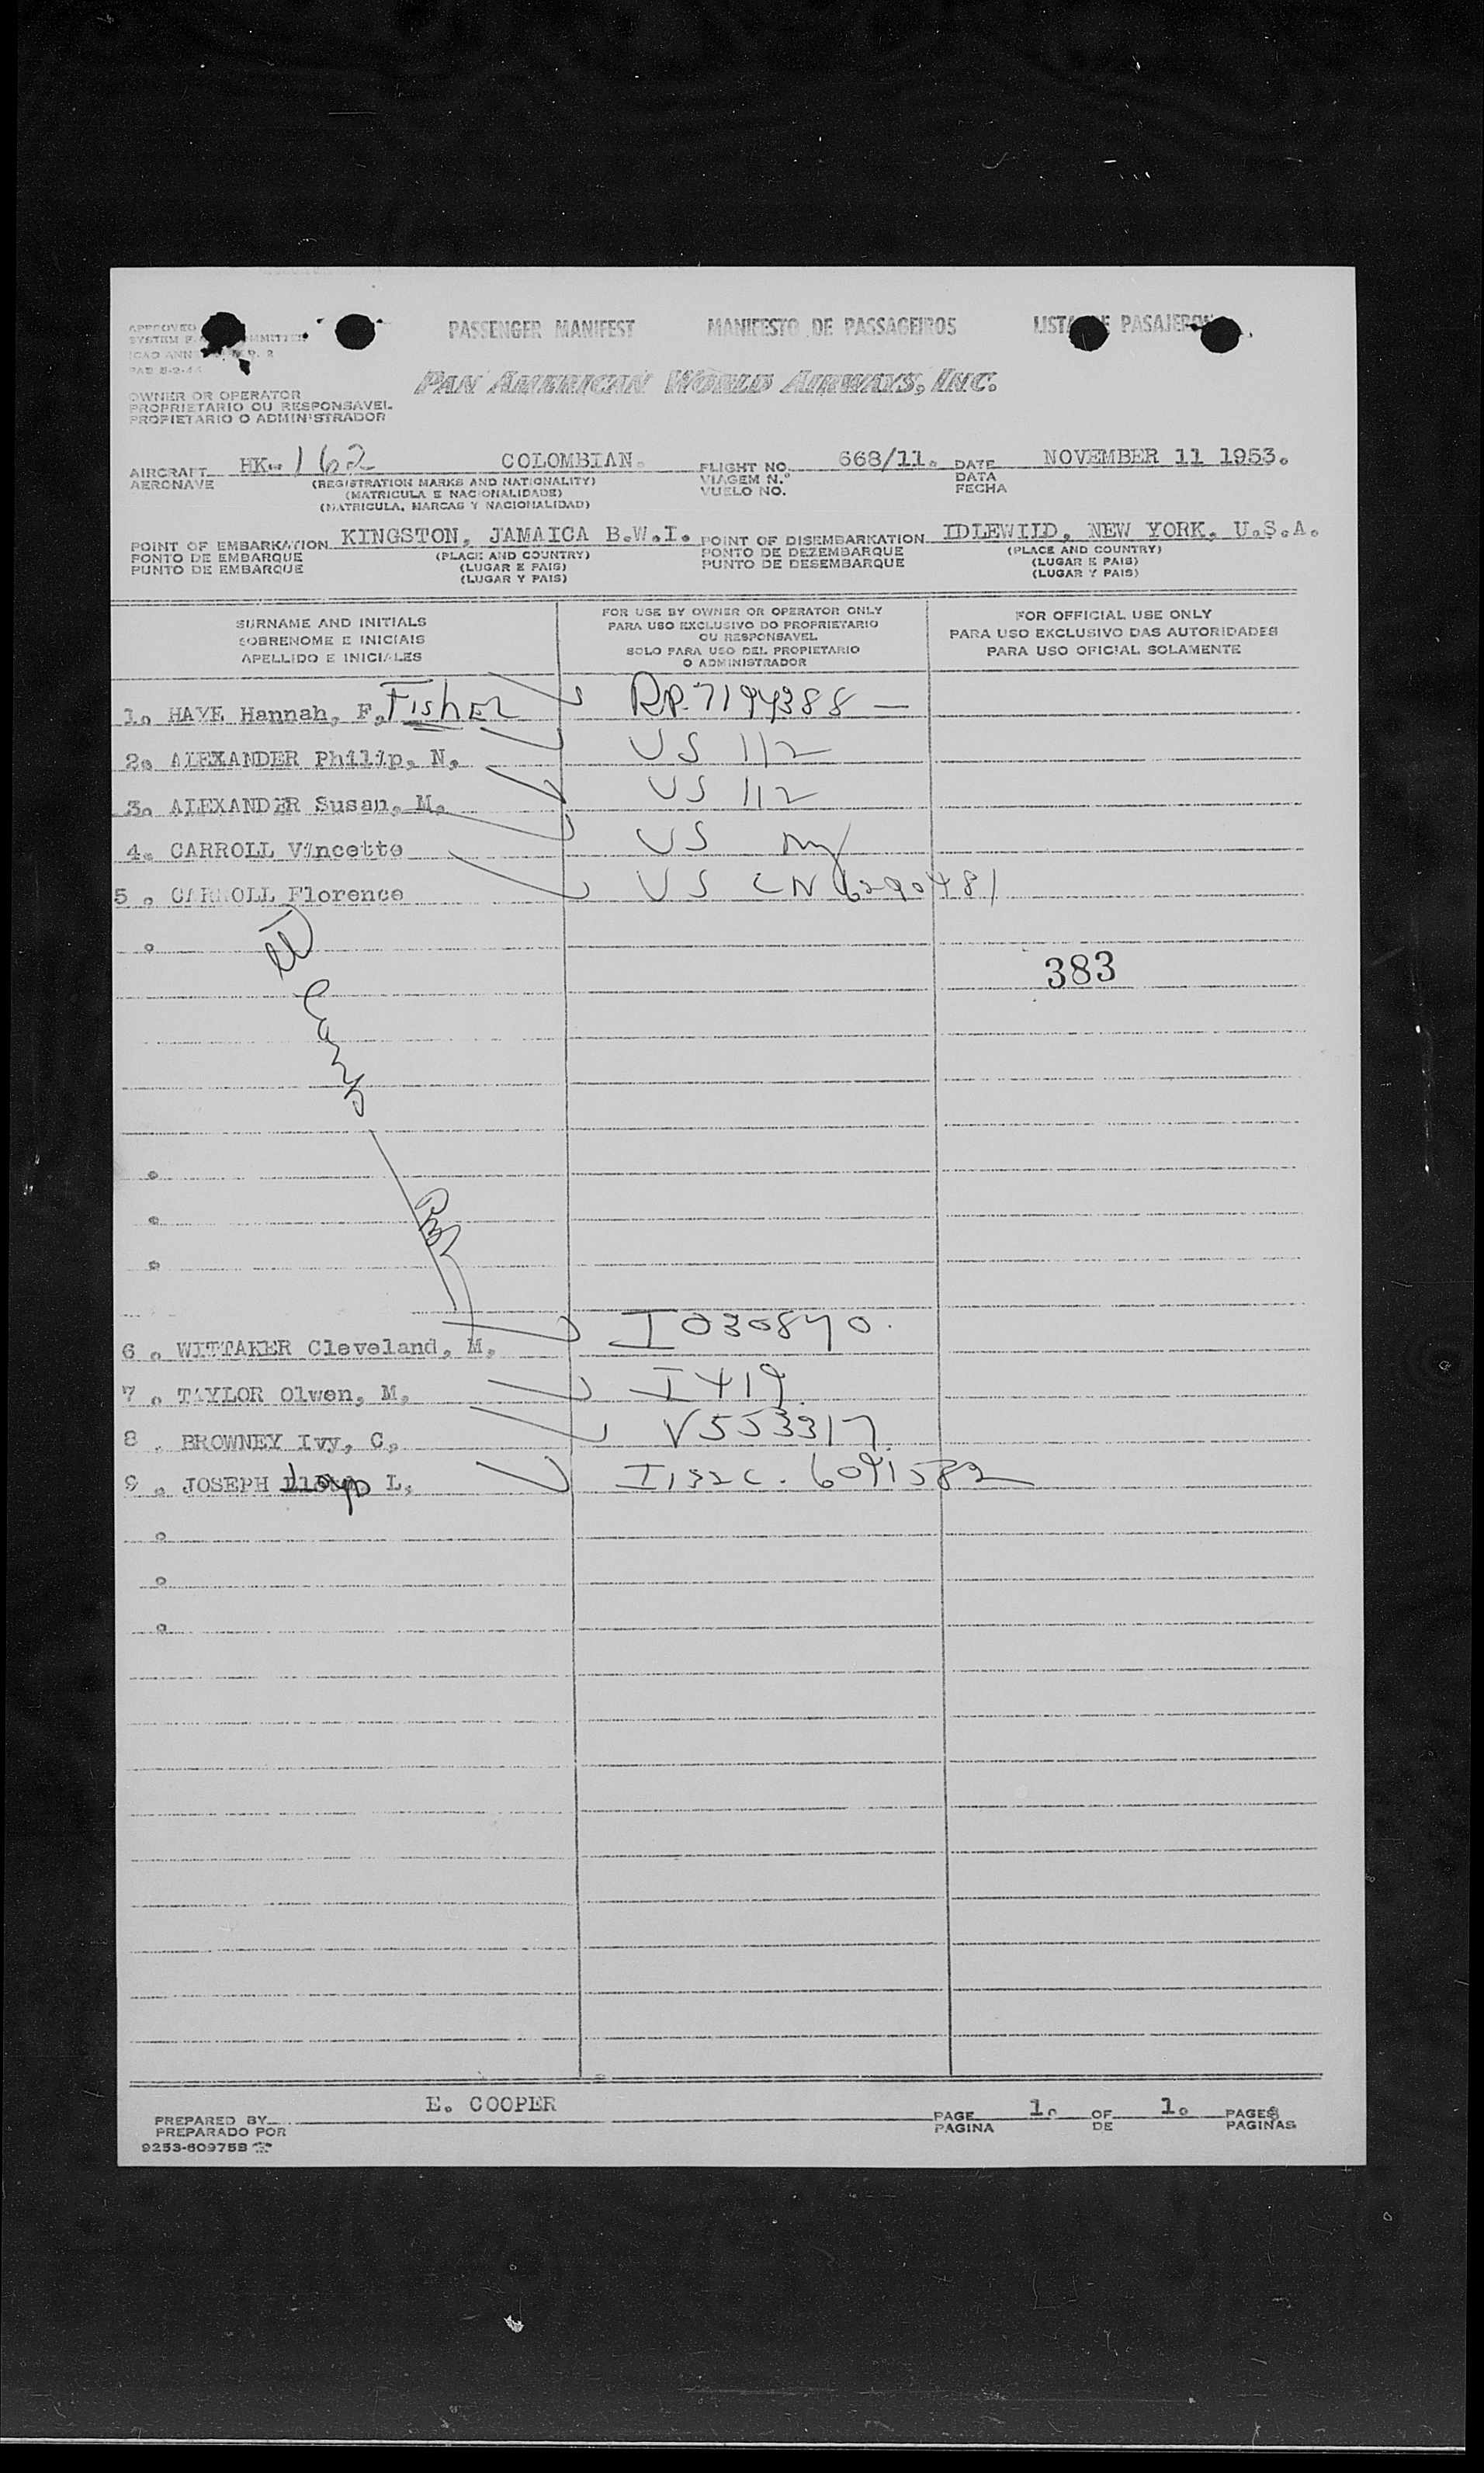 APPROVED
SYSTEM
ICAO ANN
PAB 5-2-
PASSENGER MANIFEST MANIFESTO DE PASSAGEIROS LISTA DE PASAJEROS
PAN AMERICAN WORLD AIRWAYS, INC.
OWNER OR OPERATOR
PROPRIETARIO OU RESPONSAVEL
PROPIETARIO O ADMINISTRADOR
AIRCRAFT HK-162 COLOMBIAN. FLIGHT NO. 668/11. DATE NOVEMBER 11 1953.
AERONAVE (REGISTRATION MARKS AND NATIONALITY) VIAGEM N.º DATA
(MATRICULA E NACIONALIDADE) VUELO NO. FECHA
(MATRICULA, MARCAS Y NACIONALIDAD)
POINT OF EMBARKATION KINGSTON, JAMAICA B.W.I. POINT OF DISEMBARKATION IDLEWILD, NEW YORK, U.S.A.
PONTO DE EMBARQUE (PLACE AND COUNTRY) PONTO DE DEZEMBARQUE (PLACE AND COUNTRY)
PUNTO DE EMBARQUE (LUGAR E PAIS) PUNTO DE DESEMBARQUE (LUGAR E PAIS)
(LUGAR Y PAIS) (LUGAR Y PAIS)
SURNAME AND INITIALS
SOBRENOME E INICIAIS
APELLIDO E INICIALES
FOR USE BY OWNER OR OPERATOR ONLY
PARA USO EXCLUSIVO DO PROPRIETARIO
OU RESPONSAVEL
SOLO PARA USO DEL PROPIETARIO
O ADMINISTRADOR
FOR OFFICIAL USE ONLY
PARA USO EXCLUSIVO DAS AUTORIDADES
PARA USO OFICIAL SOLAMENTE
1. HAYE Hannah, F. Fisher RP. 7194388 —
2. ALEXANDER Philip, N. US 112
3. ALEXANDER Susan, M. US 112
4. CARROLL Vincette US NY
5. CARROLL Florence US CN 6290481
383
6. WITTAKER Cleveland, M. I 030840.
7. TAYLOR Olwen, M. I 419
8. BROWNEY Ivy, C. V553317
9. JOSEPH Lloyd L. I132c. 6091582
PREPARED BY E. COOPER PAGE 1. OF 1. PAGES
PREPARADO POR PAGINA DE PAGINAS
9253-60975B